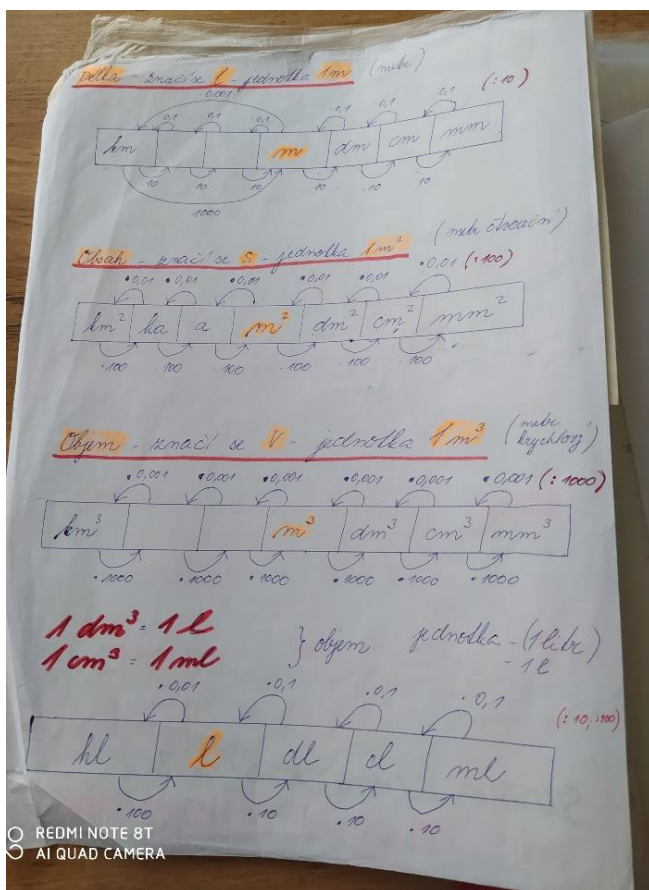 Délka - značí se l - jednotka 1m (metr)
·0,001
·0,1 ·0,1 ·0,1 ·0,1 ·0,1 ·0,1 (:10)
km m dm cm mm
·10 ·10 ·10 ·10 ·10 ·10
·1000
Obsah - značí se S - jednotka 1m² (metr čtvereční)
·0,01 ·0,01 ·0,01 ·0,01 ·0,01 ·0,01 (:100)
km² ha a m² dm² cm² mm²
·100 ·100 ·100 ·100 ·100 ·100
Objem - značí se V - jednotka 1m³ (metr krychlový)
·0,001 ·0,001 ·0,001 ·0,001 ·0,001 ·0,001 (:1000)
km³ m³ dm³ cm³ mm³
·1000 ·1000 ·1000 ·1000 ·1000 ·1000
1 dm³ = 1 l
1 cm³ = 1 ml
} objem jednotka - (1 litr)
- 1 l
·0,01 ·0,1 ·0,1 ·0,1 (:10, :100)
hl l dl cl ml
·100 ·10 ·10 ·10
REDMI NOTE 8T
AI QUAD CAMERA